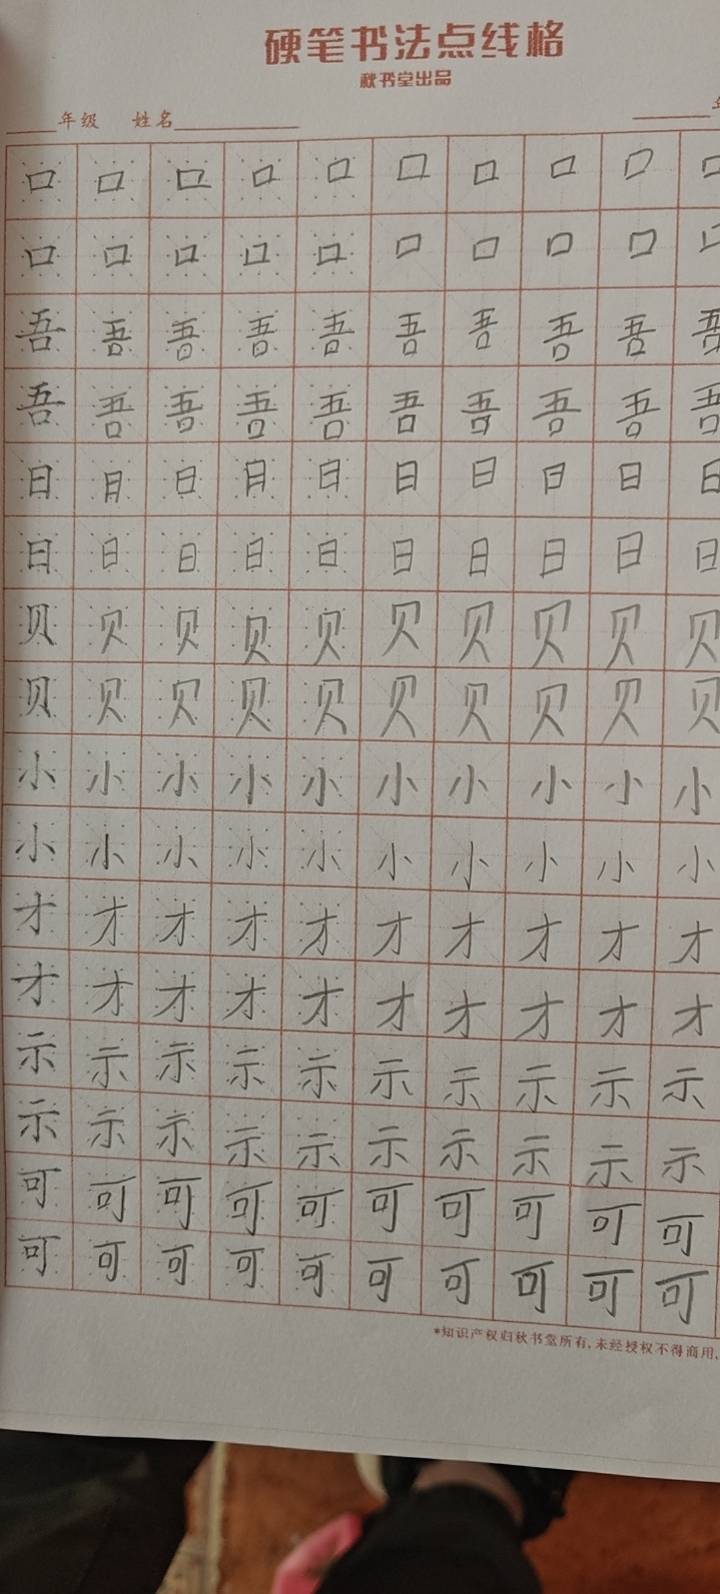 硬笔书法点线格
秋书堂出品
年级 姓名
口口口口口口口口口
口口口口口口口口口
吾吾吾吾吾吾吾吾吾吾
吾吾吾吾吾吾吾吾吾吾
日日日日日日日日日日
日日日日日日日日日日
贝贝贝贝贝贝贝贝贝贝
贝贝贝贝贝贝贝贝贝贝
小小小小小小小小小小
小小小小小小小小小小
才才才才才才才才才才
才才才才才才才才才才
示示示示示示示示示示
示示示示示示示示示示
可可可可可可可可可可
可可可可可可可可可可
*知识产权归秋书堂所有,未经授权不得商用,